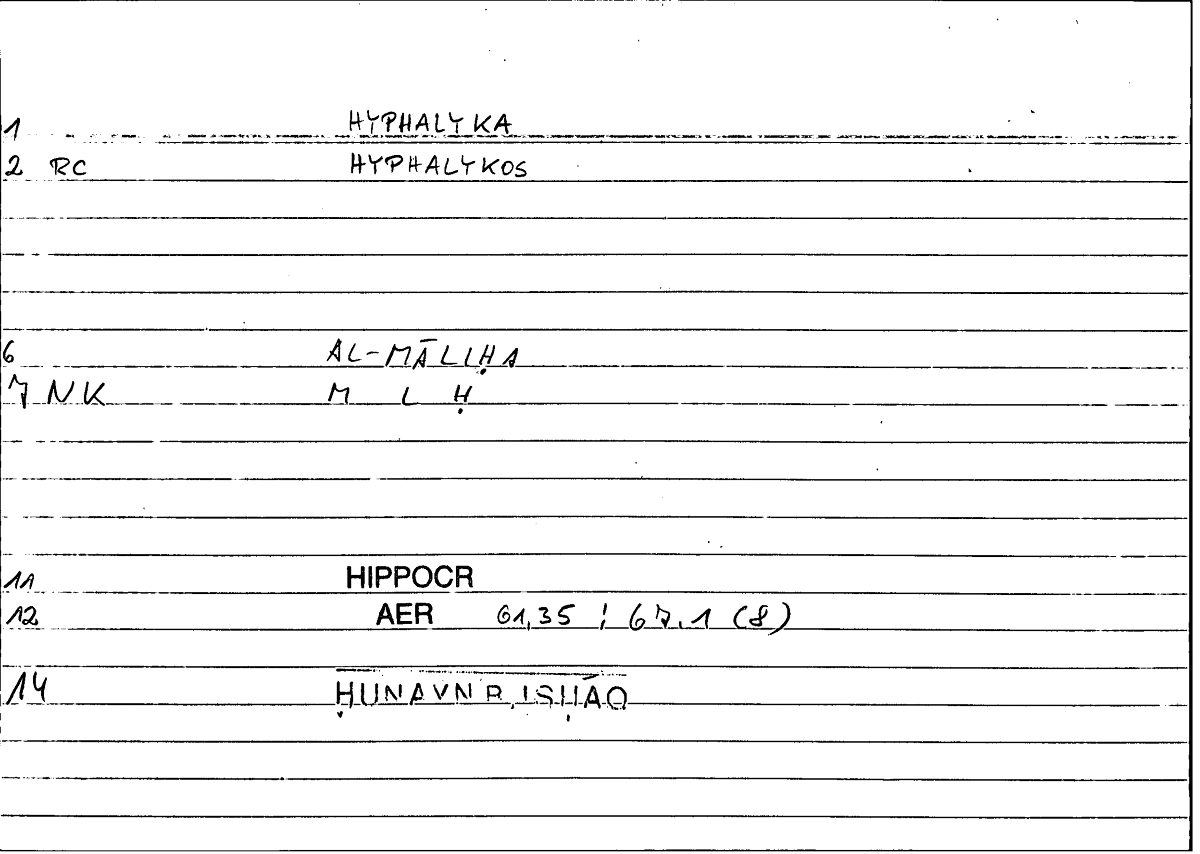 1 HYPHALYKA
2 RC HYPHALYKOS
6 AL-MĀLIḤA
7 NK M L Ḥ
11 HIPPOCR
12 AER 61,35 ; 67.1 (8)
14 ḤUNAYN B. ISḤĀQ